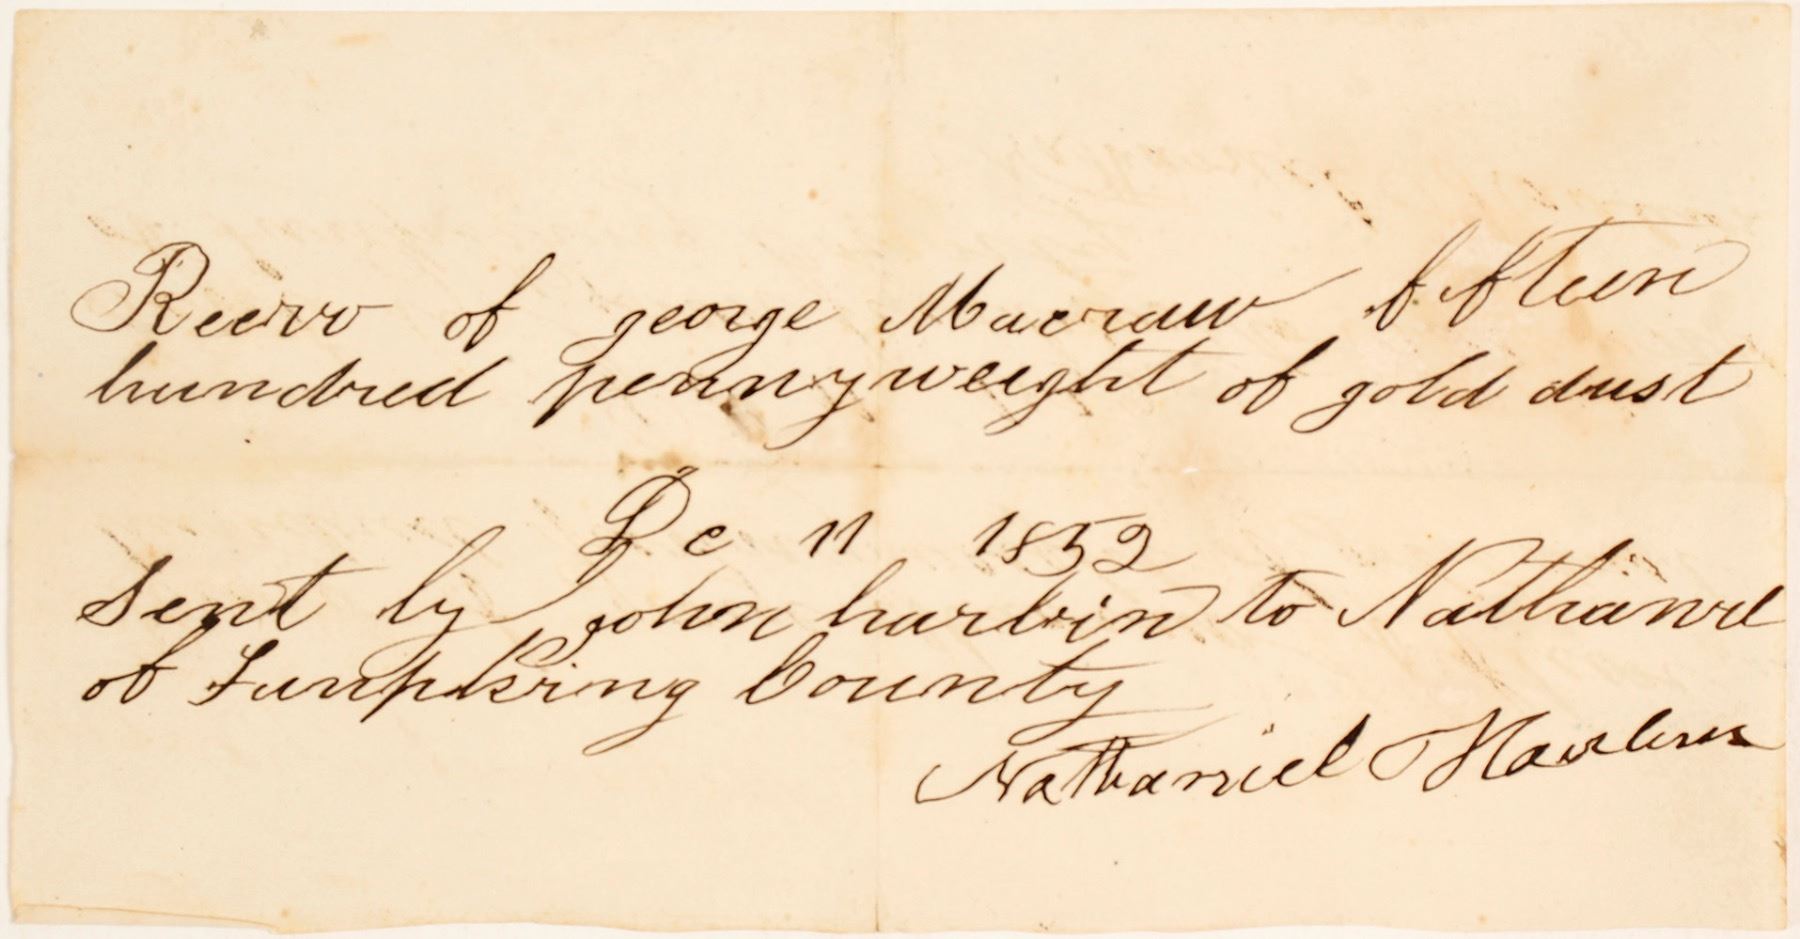 Recevv of george Macraw fifteen
hundred pennyweight of gold dust
Dc 11 1852
Sent by john harbin to Nathaniel
of Lumpkring County
Nathaniel Harben